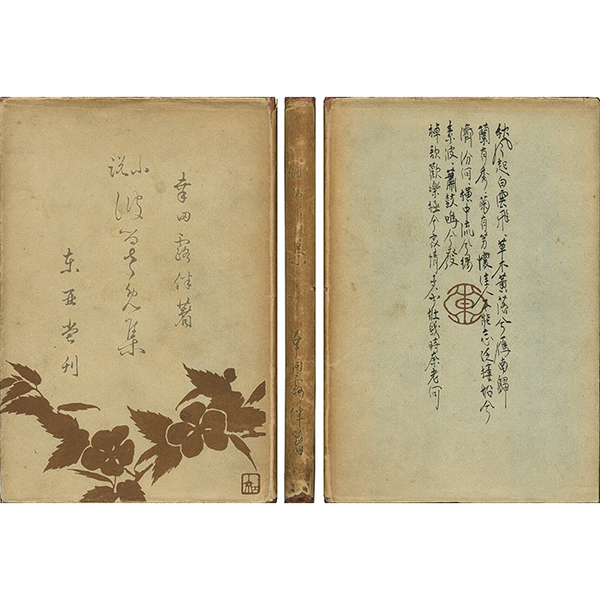 幸田露伴著
小説
波るさ免集
东亜堂刊
幸田露伴著
秋風起白雲飛草木黄落兮鴈南歸
蘭有秀菊有芳懷佳人不能忘泛樓船兮
濟汾河横中流兮揚
素波簫鼓鳴兮發
棹歌歡樂極兮哀情多少壯幾時奈老何